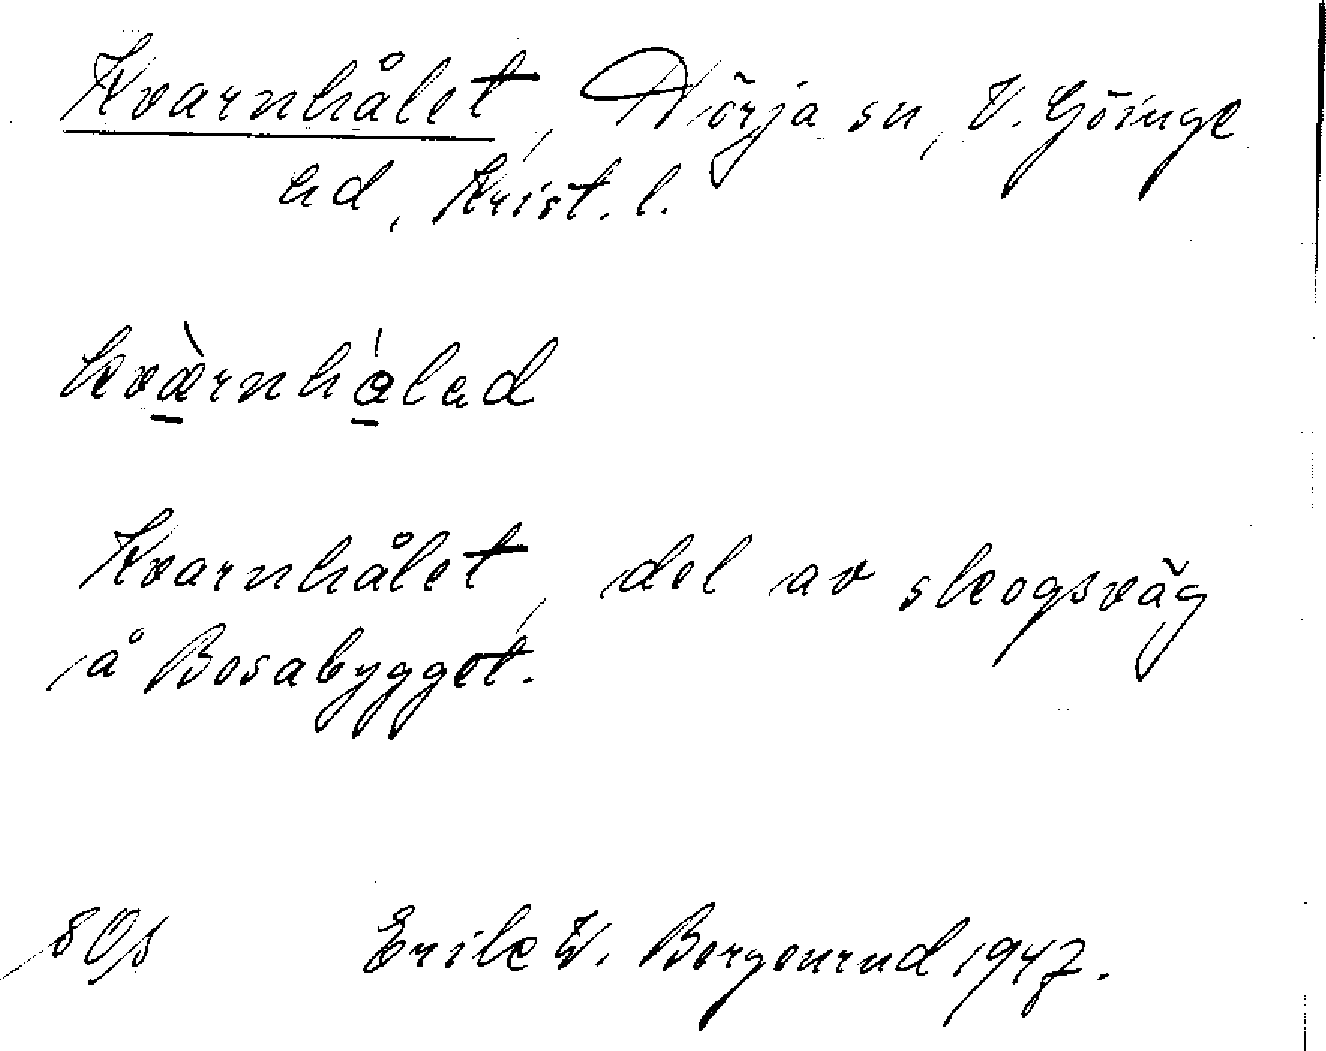 Kvarnhålet, Nörja sn, V. Göinge
hd, Krist. l.
kvæ̀rnhálad
Kvarnhålet, del av skogsväg
å Bosabygget.
Erik W. Borgenrud 1947.